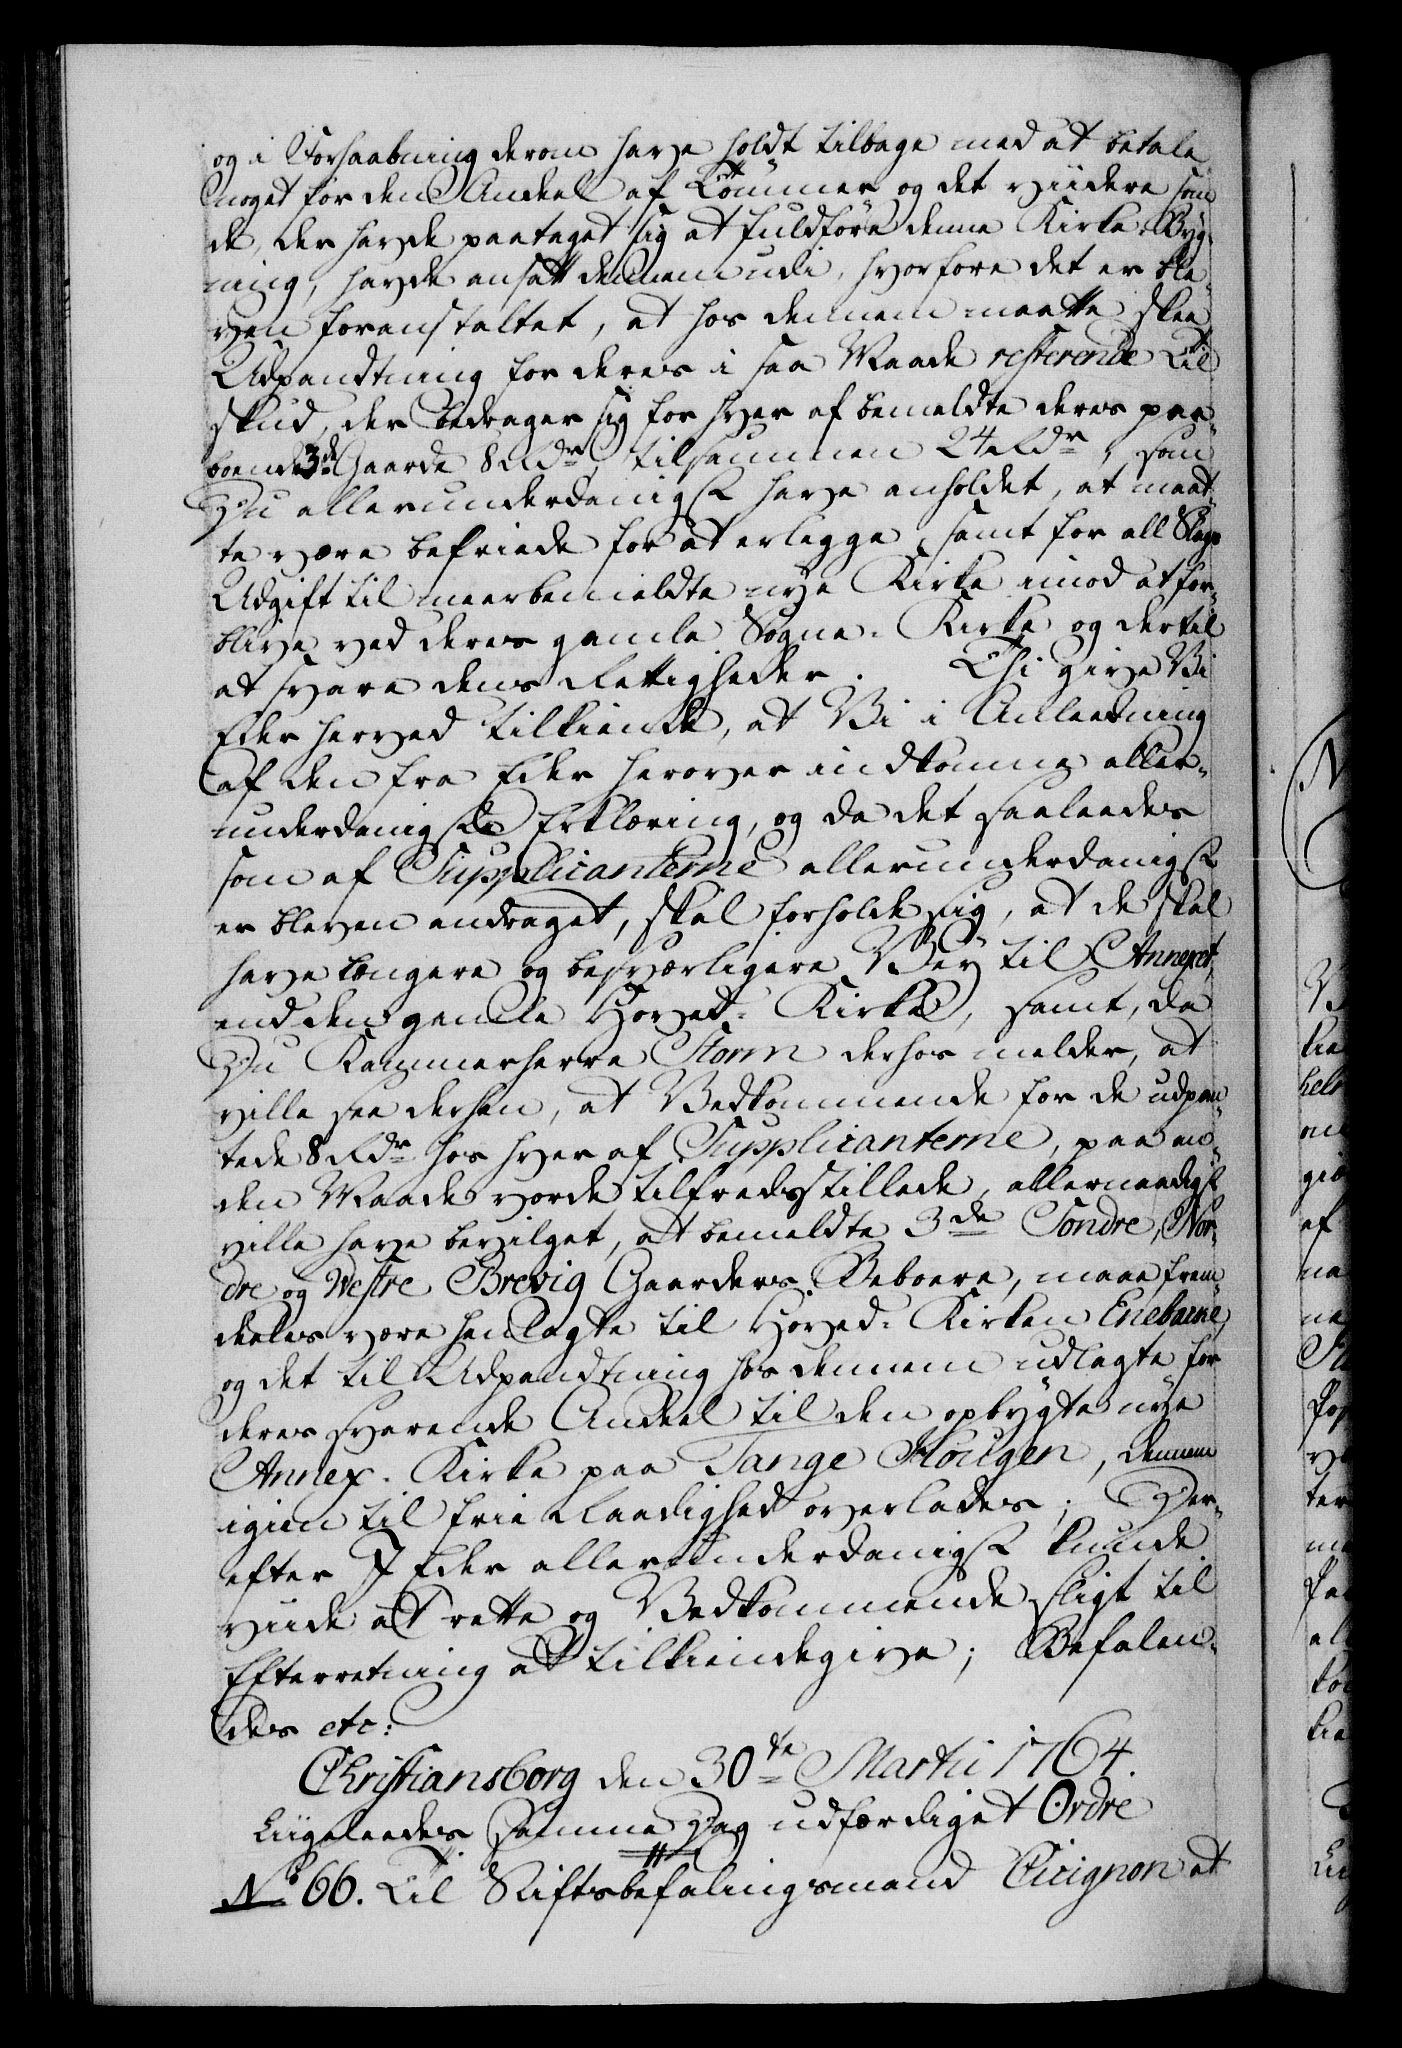 og i Forhaabning derom have holdt tilbage med at betale
noget for den Andeel af Tømmer og det viidere som
de, der havde paataget sig at fuldføre denne Kirke-Byg-
ning, havde ansatt dennem udi, hvorfore det er ble-
ven foranstaltet, at hos dennem maatte skee
Udpandtning for deres i saa Maade resterende Til
skud, der bedrager sig for hver af bemeldte deres paa-
boende 3de Gaarde 8 Rdr, tilsammen 24 Rdr, som
Du allerunderdanigst have anholdet, at maat-
te være befriede for at erlegge, samt for all Slags
Udgift til meerbemeldte nye Kirke imod at for-
blive ved deres gamle Sogne-Kirke og dertil
at svare dens Rettigheder. Thi give Vi
Eder herved tilkiende, at Vi i Anleedning
af den fra Eder herover indkomne aller-
underdanigste Erklæring, og da det saaleedes
som af Supplicanterne allerunderdanigst
er bleven andraget, skal forholde sig, at de skal
have længere og besværligere Vey til Annexet,
end den gamle Hoved-Kirke, samt, da
Du Kammerherre Storm derhos melder, at
ville see derhen, at Vedkommende for de udpan-
tede 8 Rdr hos hver af Supplicanterne, paa an-
den Maade vorde tilfredsstillede, allernaadigst
ville have bevilget, at bemeldte 3de Søndre, Nor-
dre og Westre Brevig Gaarders Beboere, maae frem-
deeles være henlagte til Hoved-Kirken Enebakke,
og det til Udpandtning hos dennem udlagte for
deres svarende Andeel til den opbygte nye
Annex-Kirke paa Tange Hougen, dennem
igien til frie Raadighed overlades; Der-
efter I Eder allerunderdanigst kunde
viide at rette og Vedkommende sligt til
Efterretning at tilkiendegive; Befalen-
des etc:
Christiansborg den 30te Martii 1764.
Liigeleedes samme Dag udfærdiget Ordre
No 66. Til Stiftsbefalingsmand Cicignon at